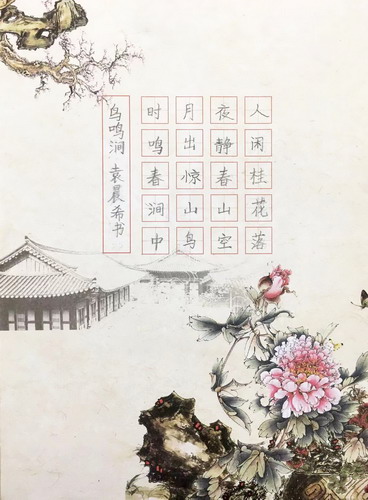 人闲桂花落
夜静春山空
月出惊山鸟
时鸣春涧中
鸟鸣涧 袁晨希书